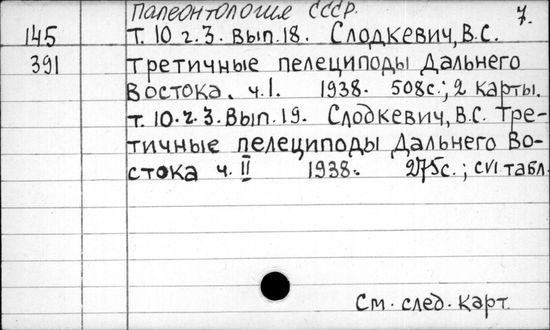 Палеонтология СССР. 7.
145 Т. 10 г. 3. Вып. 18. Слодкевич, В.С.
391 Третичные пелециподы Дальнего
Востока. ч. I. 1938. 508с.; 2 карты.
т. 10. г. 3. Вып. 19. Слодкевич, В.С. Тре-
тичные пелециподы Дальнего Во-
стока ч. II 1938. 275с.; CVI табл.
См. след. карт.